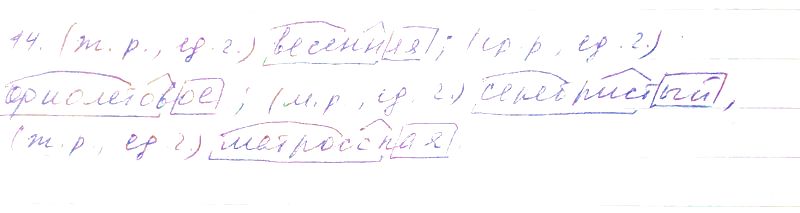 14. (ж. р., ед. ч.) весенняя; (ср. р., ед. ч.)
фиолетовое; (м. р., ед. ч.) серебристый,
(ж. р., ед. ч.) матросская